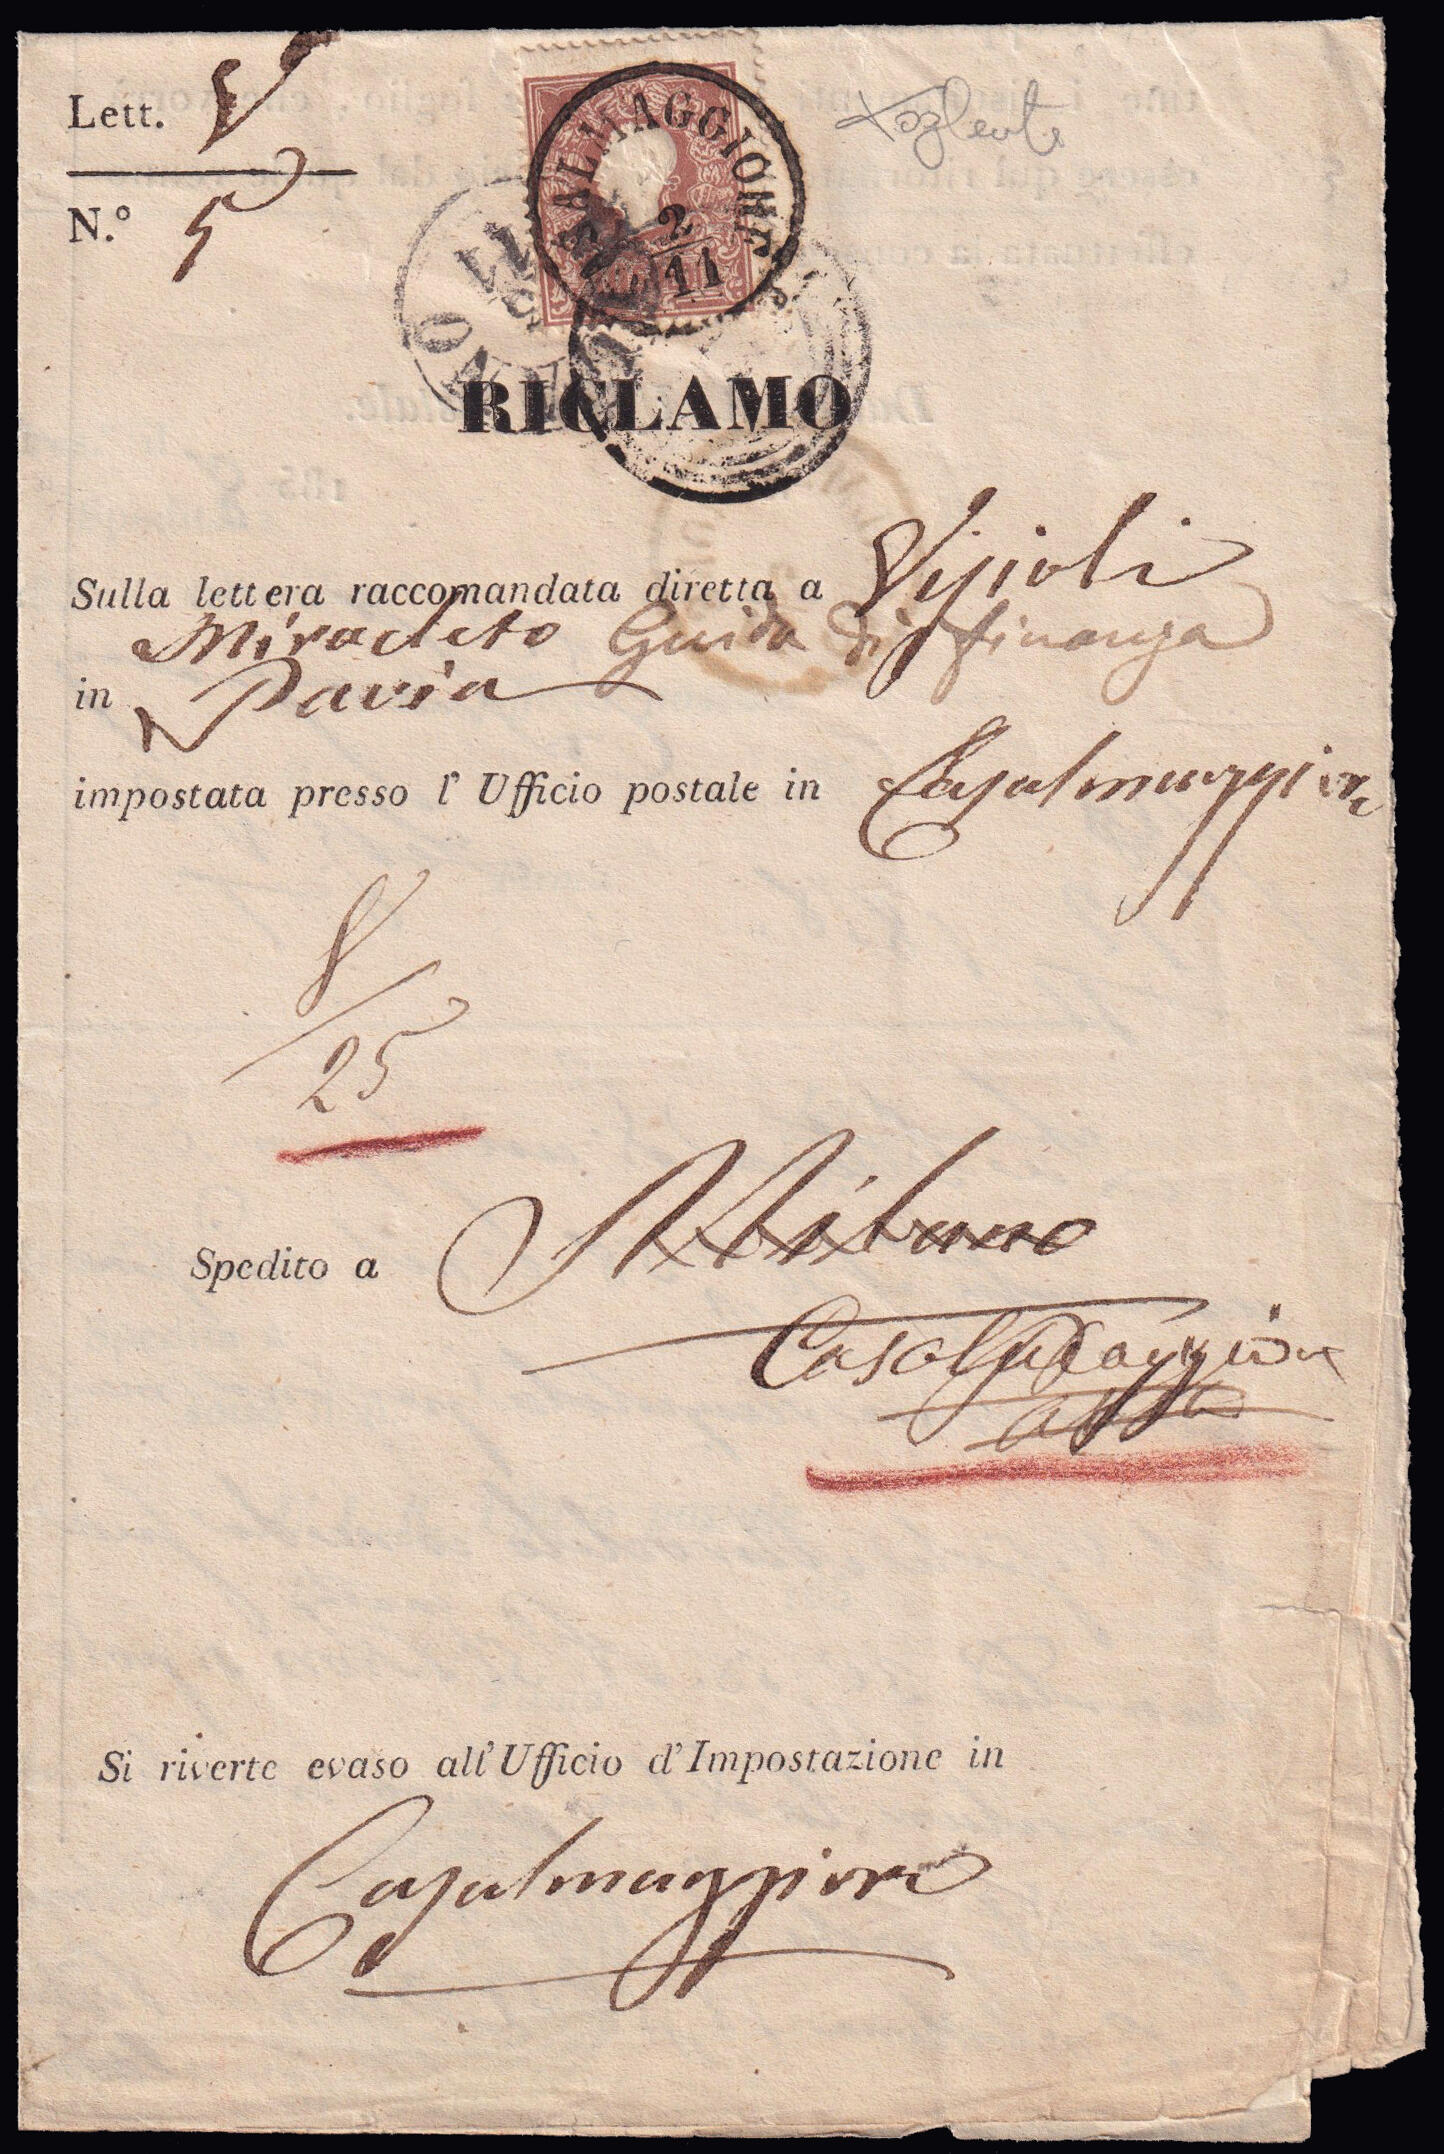 Lett. V
N.º 5
CASALMAGGIORE
2/11
MILANO
11
RICLAMO
Sulla lettera raccomandata diretta a
Guida di finanza
in Pavia
impostata presso l' Ufficio postale in Casalmaggiore
V/25
Spedito a Milano
Casalmaggiore
Si riverte evaso all' Ufficio d' Impostazione in
Casalmaggiore